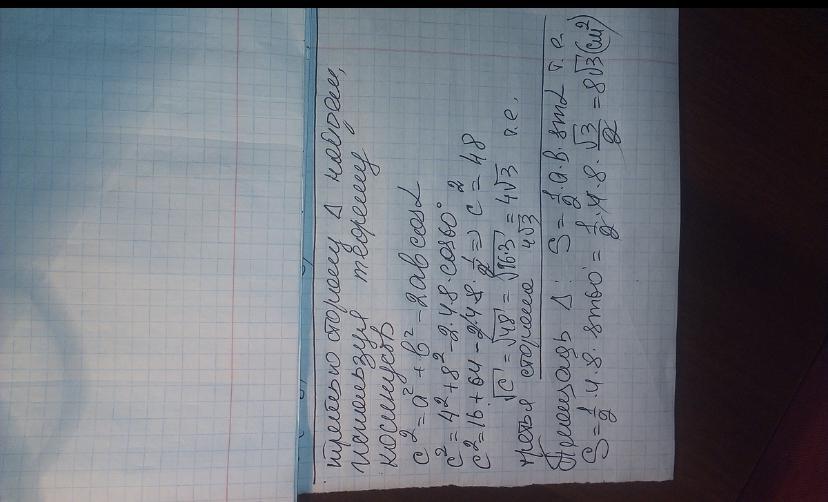 третью сторону Δ найдём,
используя теорему
косинусов
c² = a² + b² - 2ab cosα
c² = 4² + 8² - 2·4·8·cos60°
c² = 16 + 64 - 2·4·8·1/2 => c² = 48
√c = √48 = √16·3 = 4√3 т.е.
третья сторона 4√3
Площадь Δ: S = 1/2·a·b·sinα т.е.
S = 1/2·4·8·sin60° = 1/2·4·8·√3/2 = 8√3 (см²)